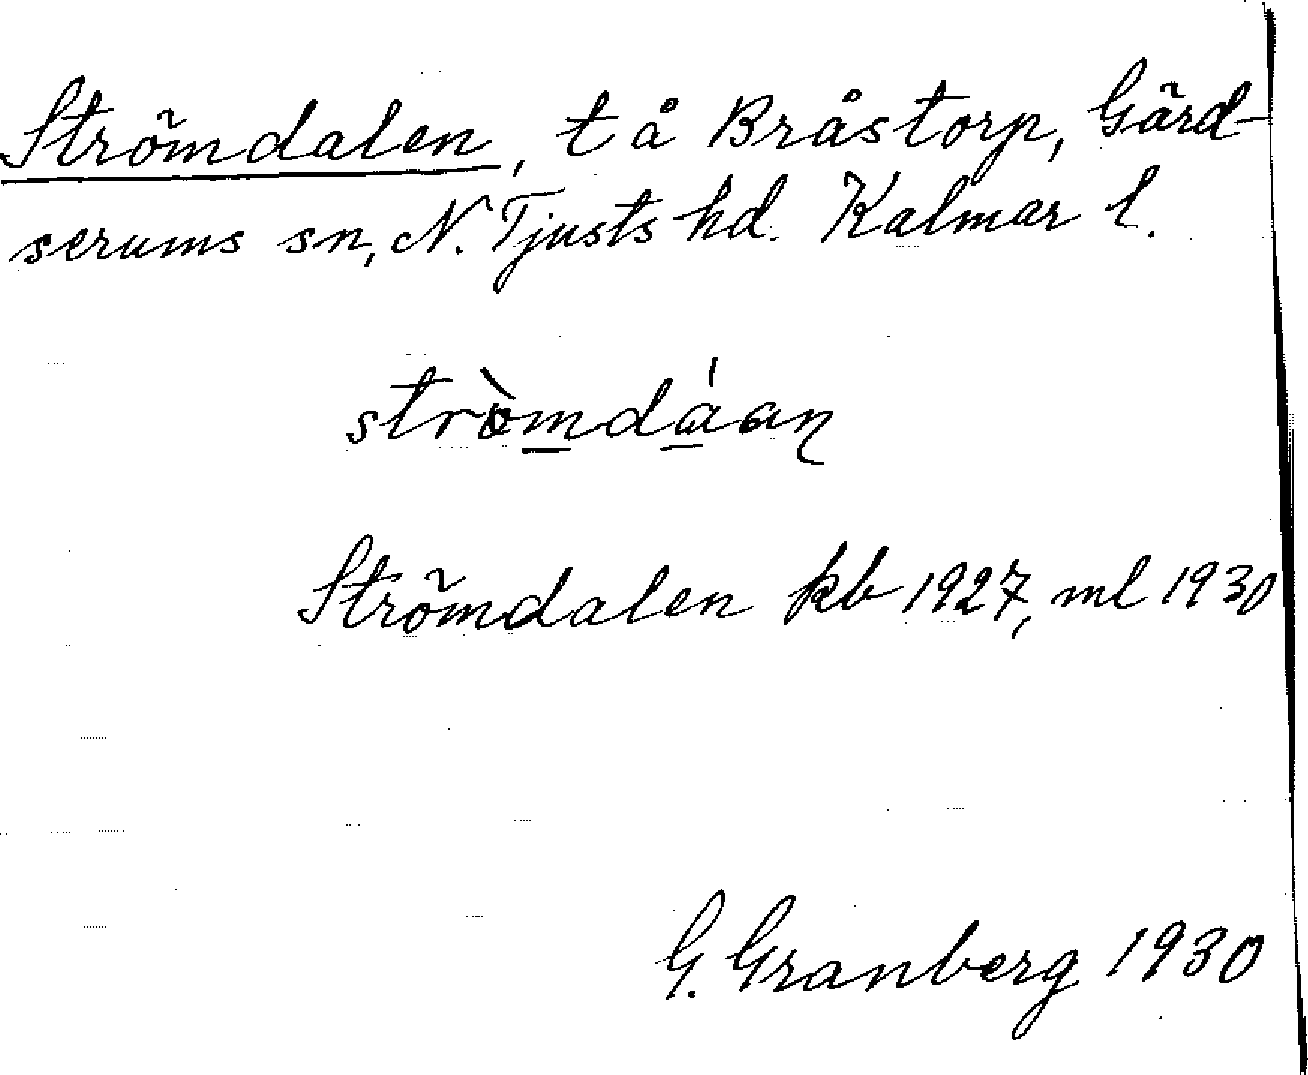 Strömdalen, t å Bråstorp, Gärd-
serums sn, N. Tjusts hd. Kalmar l.
stròmdáan
Strömdalen kb 1927, ml 1930
G. Granberg 1930